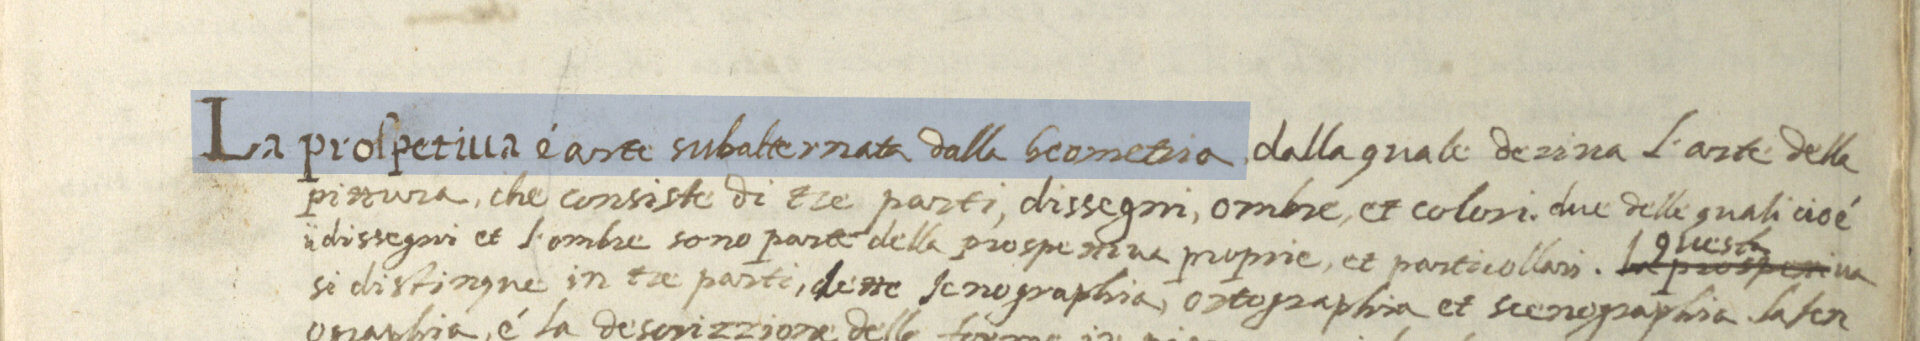 La prospetiua é arte subalternata dalla Geometria, dalla quale deriua l'arte della
pittura, che consiste di tre parti, dissegni, ombre, et colori. due delle quali cioé
ii dissegni et l'ombre sono parte della prospettiua proprie, et particollari. questa la prospettiua
si distingue in tre parti, dette Icnographia, ortographia et scenographia. la Icn
ographia, é la descrizzione delle forme in